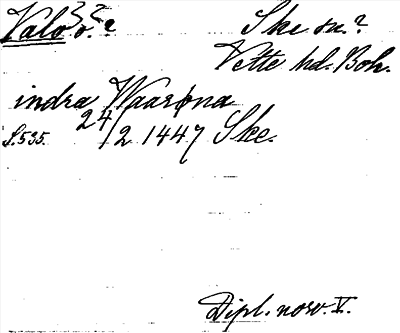 Valö ö.? Ske sn.?
Vette hd. Boh.
indra Waarøna
S. 535. 24/2 1447 Ske.
Dipl. norv. V.